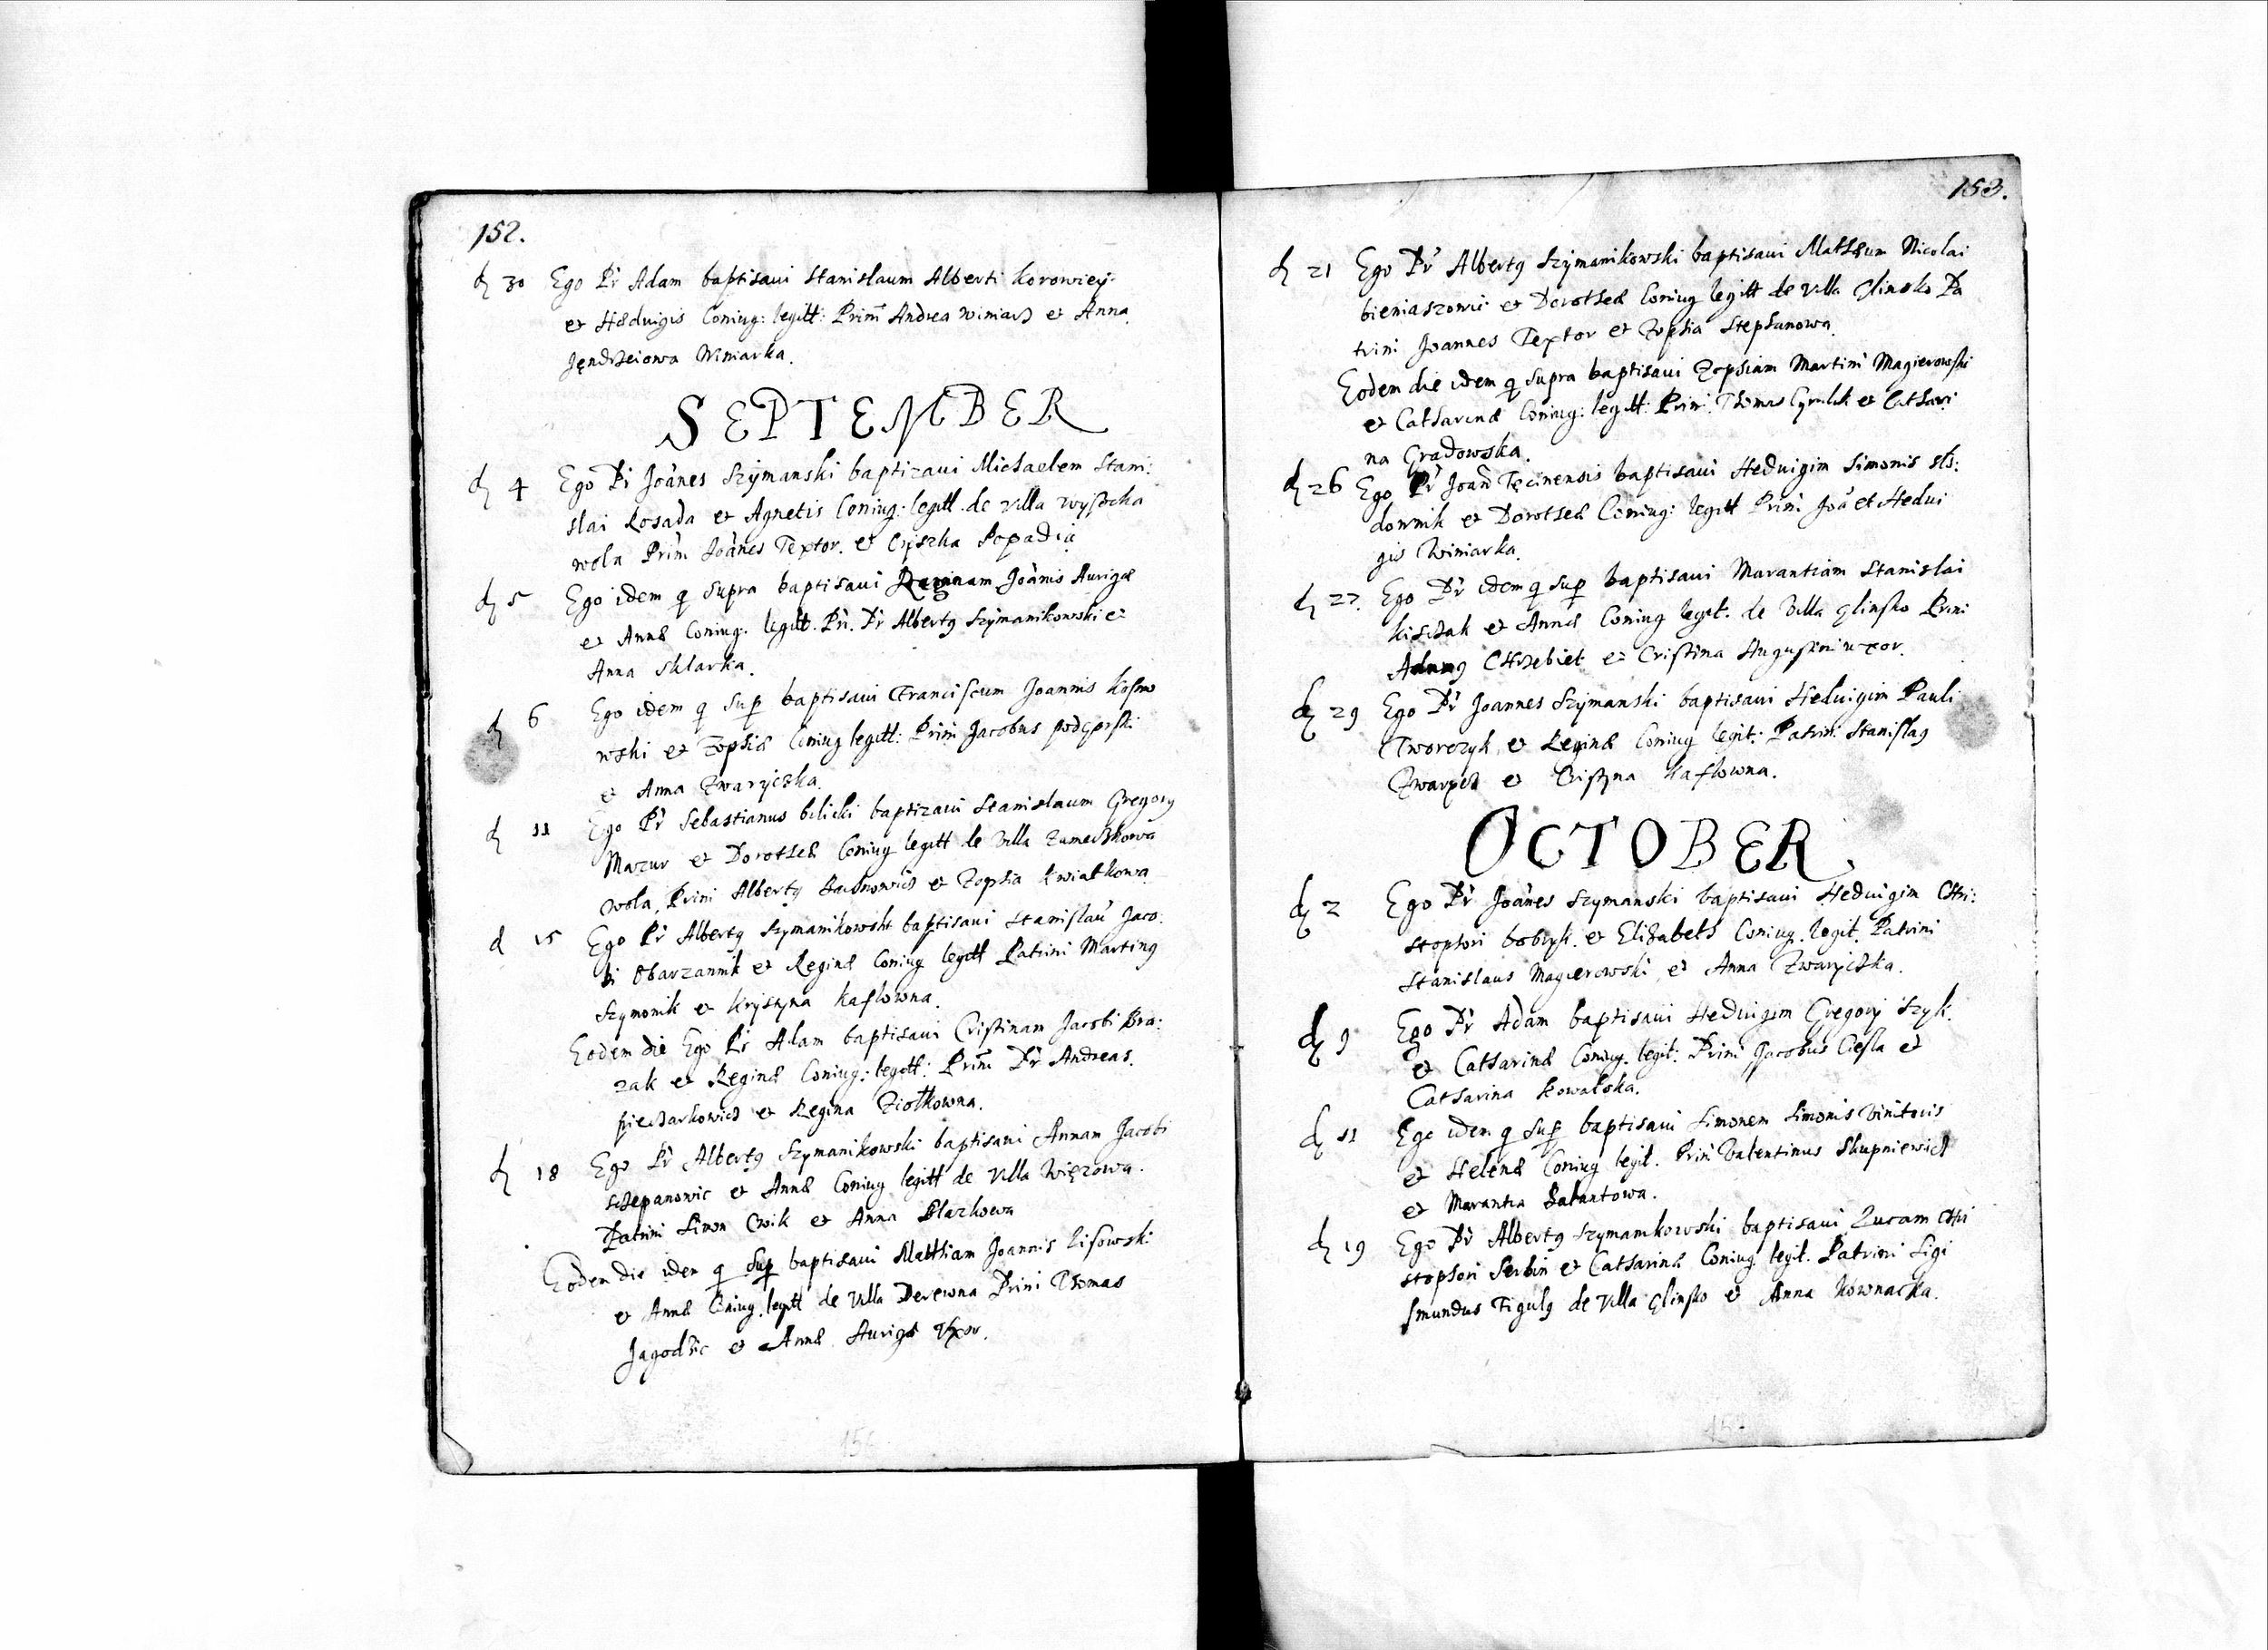 152.
d 30 Ego Pr Adam baptisaui Stanislaum Alberti Korowiey
et Hæduigis Coniug: legitt: Prini Andrea Winiarz et Anna
Jendrzeiowa Winiarka.
SEPTEMBER
d 4 Ego Pr Joanes Szymanski baptizaui Michaelem Stani:
slai Rosada et Agnetis Coniug: legitt. de Villa Wysocka
wola Prini Joanes Textor. et Popadia
d 5 Ego idem q supra baptisaui Reginam Joanis Aurigæ
et Annæ Coniug. legitt. Pri. Pr Albertq Szymanikowski et
Anna Sklarka.
d 6 Ego idem q sup baptisaui Franciscum Joannis Kosmo
wski et Zophiæ Coniug legitt: Prini Jacobus Podgorski
et Anna Zwaryczka.
d 11 Ego Pr Sebastianus bilicki baptizaui Stanislaum Gregory
Mazur et Dorotheæ Coniug legitt de Villa Zameczkowa
wola, Prini Albertq et Zophia Kwiatkowa
d 15 Ego Pr Albertq Szymanikowski baptisaui Stanislau Jaco:
bi Obarzannik et Reginæ Coniug legitt Patrini Martinq
Szymonik et Krystyna Kaflowna.
Eodem die Ego Pr Adam baptisaui Cristinam Jacobi Bra:
zak et Reginæ Coniug: legitt: Prini Pr Andreas
piecharkowicz et Regina Ziolkowna.
d 18 Ego Pr Albertq Szymanikowski baptisaui Annam Jacobi
sczepanowic et Annæ Coniug legitt de Villa Więzowa.
Patrini Simon Cwik et Anna Blazkowa
Eodem die idem q sup baptisaui Matthiam Joannis Lisowski
et Annæ Coniug. legitt de Villa Derewna Prini Thomas
Jagodzic et Annæ Aurigæ Vxor.
153.
d 21 Ego Pr Albertq Szymanikowski baptisaui Mattheum Nicolai
bieniaszowic et Dorotheæ Coniug legitt de Villa Glinsko Pa
trini Joannes Textor et Zophia Stephanowa.
Eodem die idem q supra baptisaui Zophiam Martini Magierowski
et Catharinæ Coniug: legitt: Prini Thomas et Cathari
na Gradowska.
d 26 Ego Pr Joan Tęcinensis baptisaui Heduigim Simonis sls:
downik et Dorotheæ Coniug: legitt Prini Joa et Hedui
gis Winiarka.
d 27. Ego Pr idem q sup baptisaui Marantiam Stanislai
kisczak et Annæ Coniug legit. de Villa glinsko Prini
Adamq Chrzebiet et Cristina Augustini uxor.
d 29 Ego Pr Joannes Szymanski baptisaui Heduigim Pauli
Tworczyk et Reginæ Coniug legit: Patrini Stanislaq
Zwarycz et Cristyna Kaflowna.
OCTOBER
d 2 Ego Pr Joanes Szymanski baptisaui Heduigim Chri:
stophori bobzyk. et Elizabeth Coniug. legit. Patrini
Stanislaus Magierowski et Anna Zwaryczka.
d 9 Ego Pr Adam baptisaui Heduigim Gregory Szyk.
et Catharinæ Coniug. legit: Prini Jacobus Ciesla et
Catharina Kowalska.
d 11 Ego idem q sup baptisaui Simonem Simonis Vinitoris
et Helenæ Coniug legit. Prini Valentinus Skupniewicz
et Marantia Balantowa.
d 19 Ego Pr Albertq Szymanikowski baptisaui Lucam Chri
stophori Serbin et Catharinæ Coniug legit. Patrini Sigi
smundus Figulq de Villa Glinsko et Anna Kownacka.